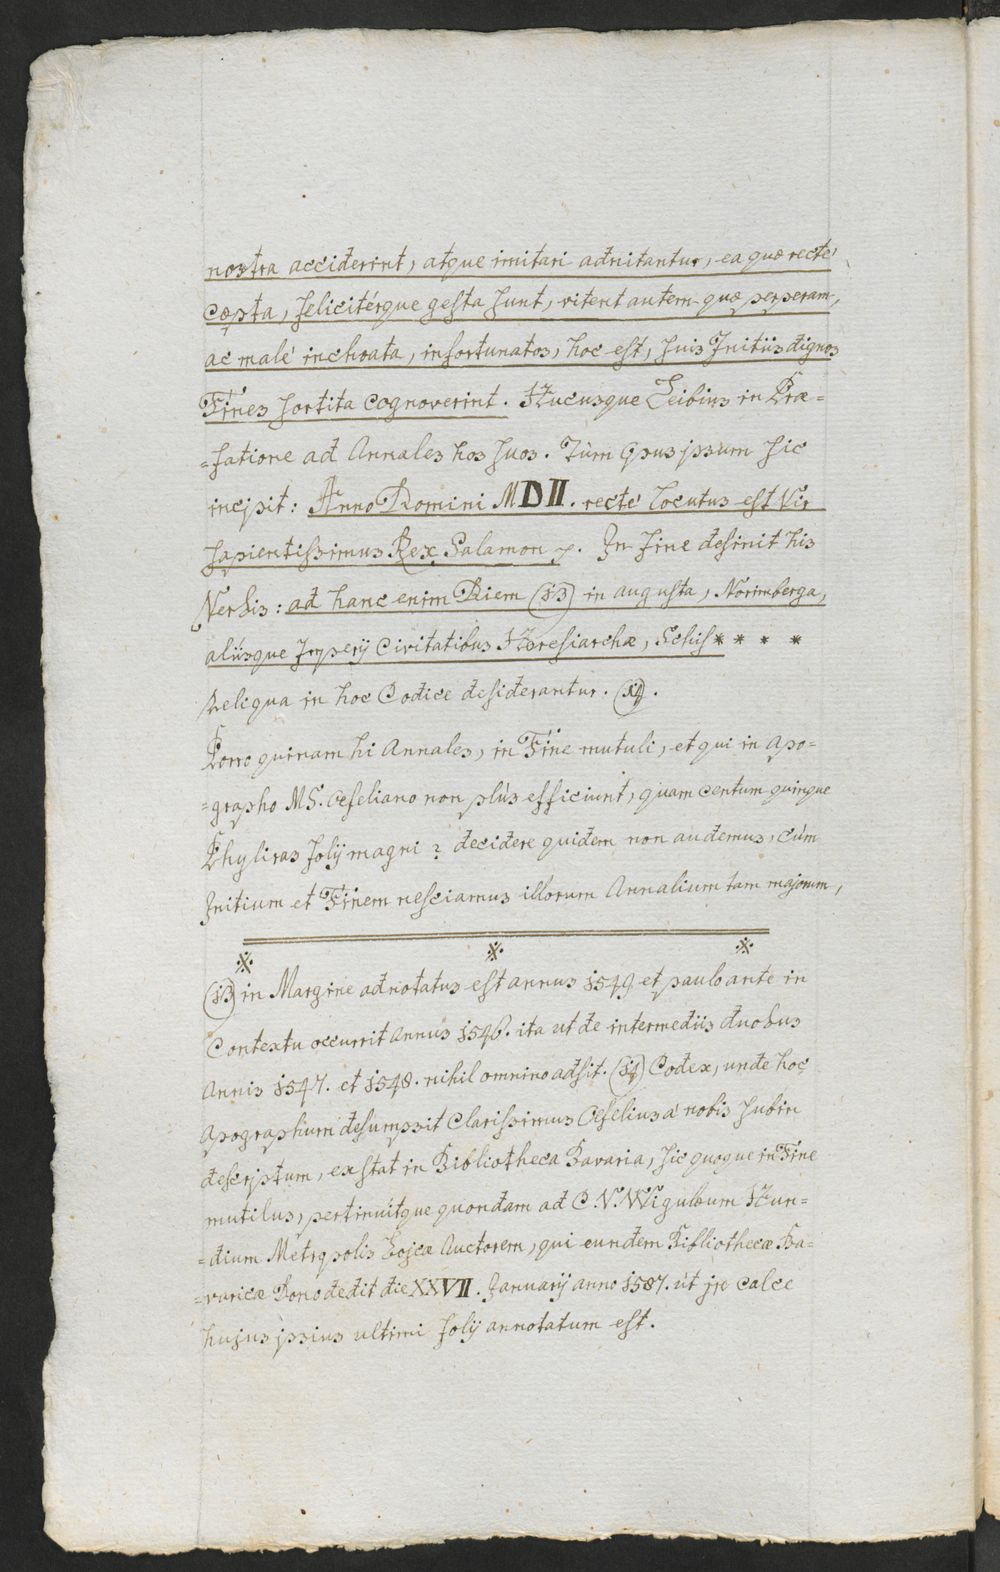 nostra acciderint, atque imitari adnitantur, ea quæ rectè
cœpta, felicitérque gesta sunt, vitent autem quæ perperam,
ac malè inchoata, infortunatos, hoc est, suis Initiis dignos
Fines sortita cognoverint. Hucusque Leibius in Præ=
=fatione ad Annales hos suos. Tùm opus ipsum sic
incipit: Anno Domini MDII. rectè locutus est Vir
sapientissimus Rex Salamon &. In fine desinit his
Verbis: ad hanc enim Diem (13) in augusta, Norimberga,
aliisque Imperij Civitatibus Hæresiarchæ, Schis * * * *
Reliqua in hoc Codice desiderantur. (14).
Porro quinam hi Annales, in Fine mutuli, et qui in Apo=
=grapho MS. Oefeliano non plùs efficiunt, quam centum quinque
Phyliras folij magni? decidere quidem non audemus, cùm
Initium et Finem nesciamus illorum Annalium tam majorum,
(13) in Margine adnotatus est annus 1549 et paulo ante in
Contextu occurrit Annus 1546. ita ut de intermediis duobus
Annis 1547. et 1548. nihil omnino adsit. (14) Codex, unde hoc
Apographum desumpsit Clarissimus Oefelius à nobis subin
descriptum, exstat in Bibliotheca Bavaria, sic quoque in Fine
mutilus, pertinuitque quondam ad C. V. Wiguleum Hun=
=dium Metropolis Auctorem, qui eundem Bibliothecæ Ba=
=varicæ Dono dedit die XXVII. Januarij anno 1587. ut in calce
hujus ipsius ultimi folij annotatum est.